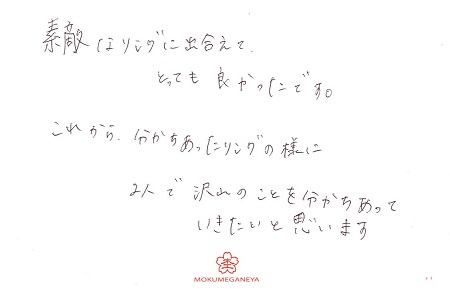 素敵なリングに出合えて、
とっても良かったです。
これから、分かちあったリングの様に
2人で沢山のことを分かちあって
いきたいと思います
MOKUMEGANEYA